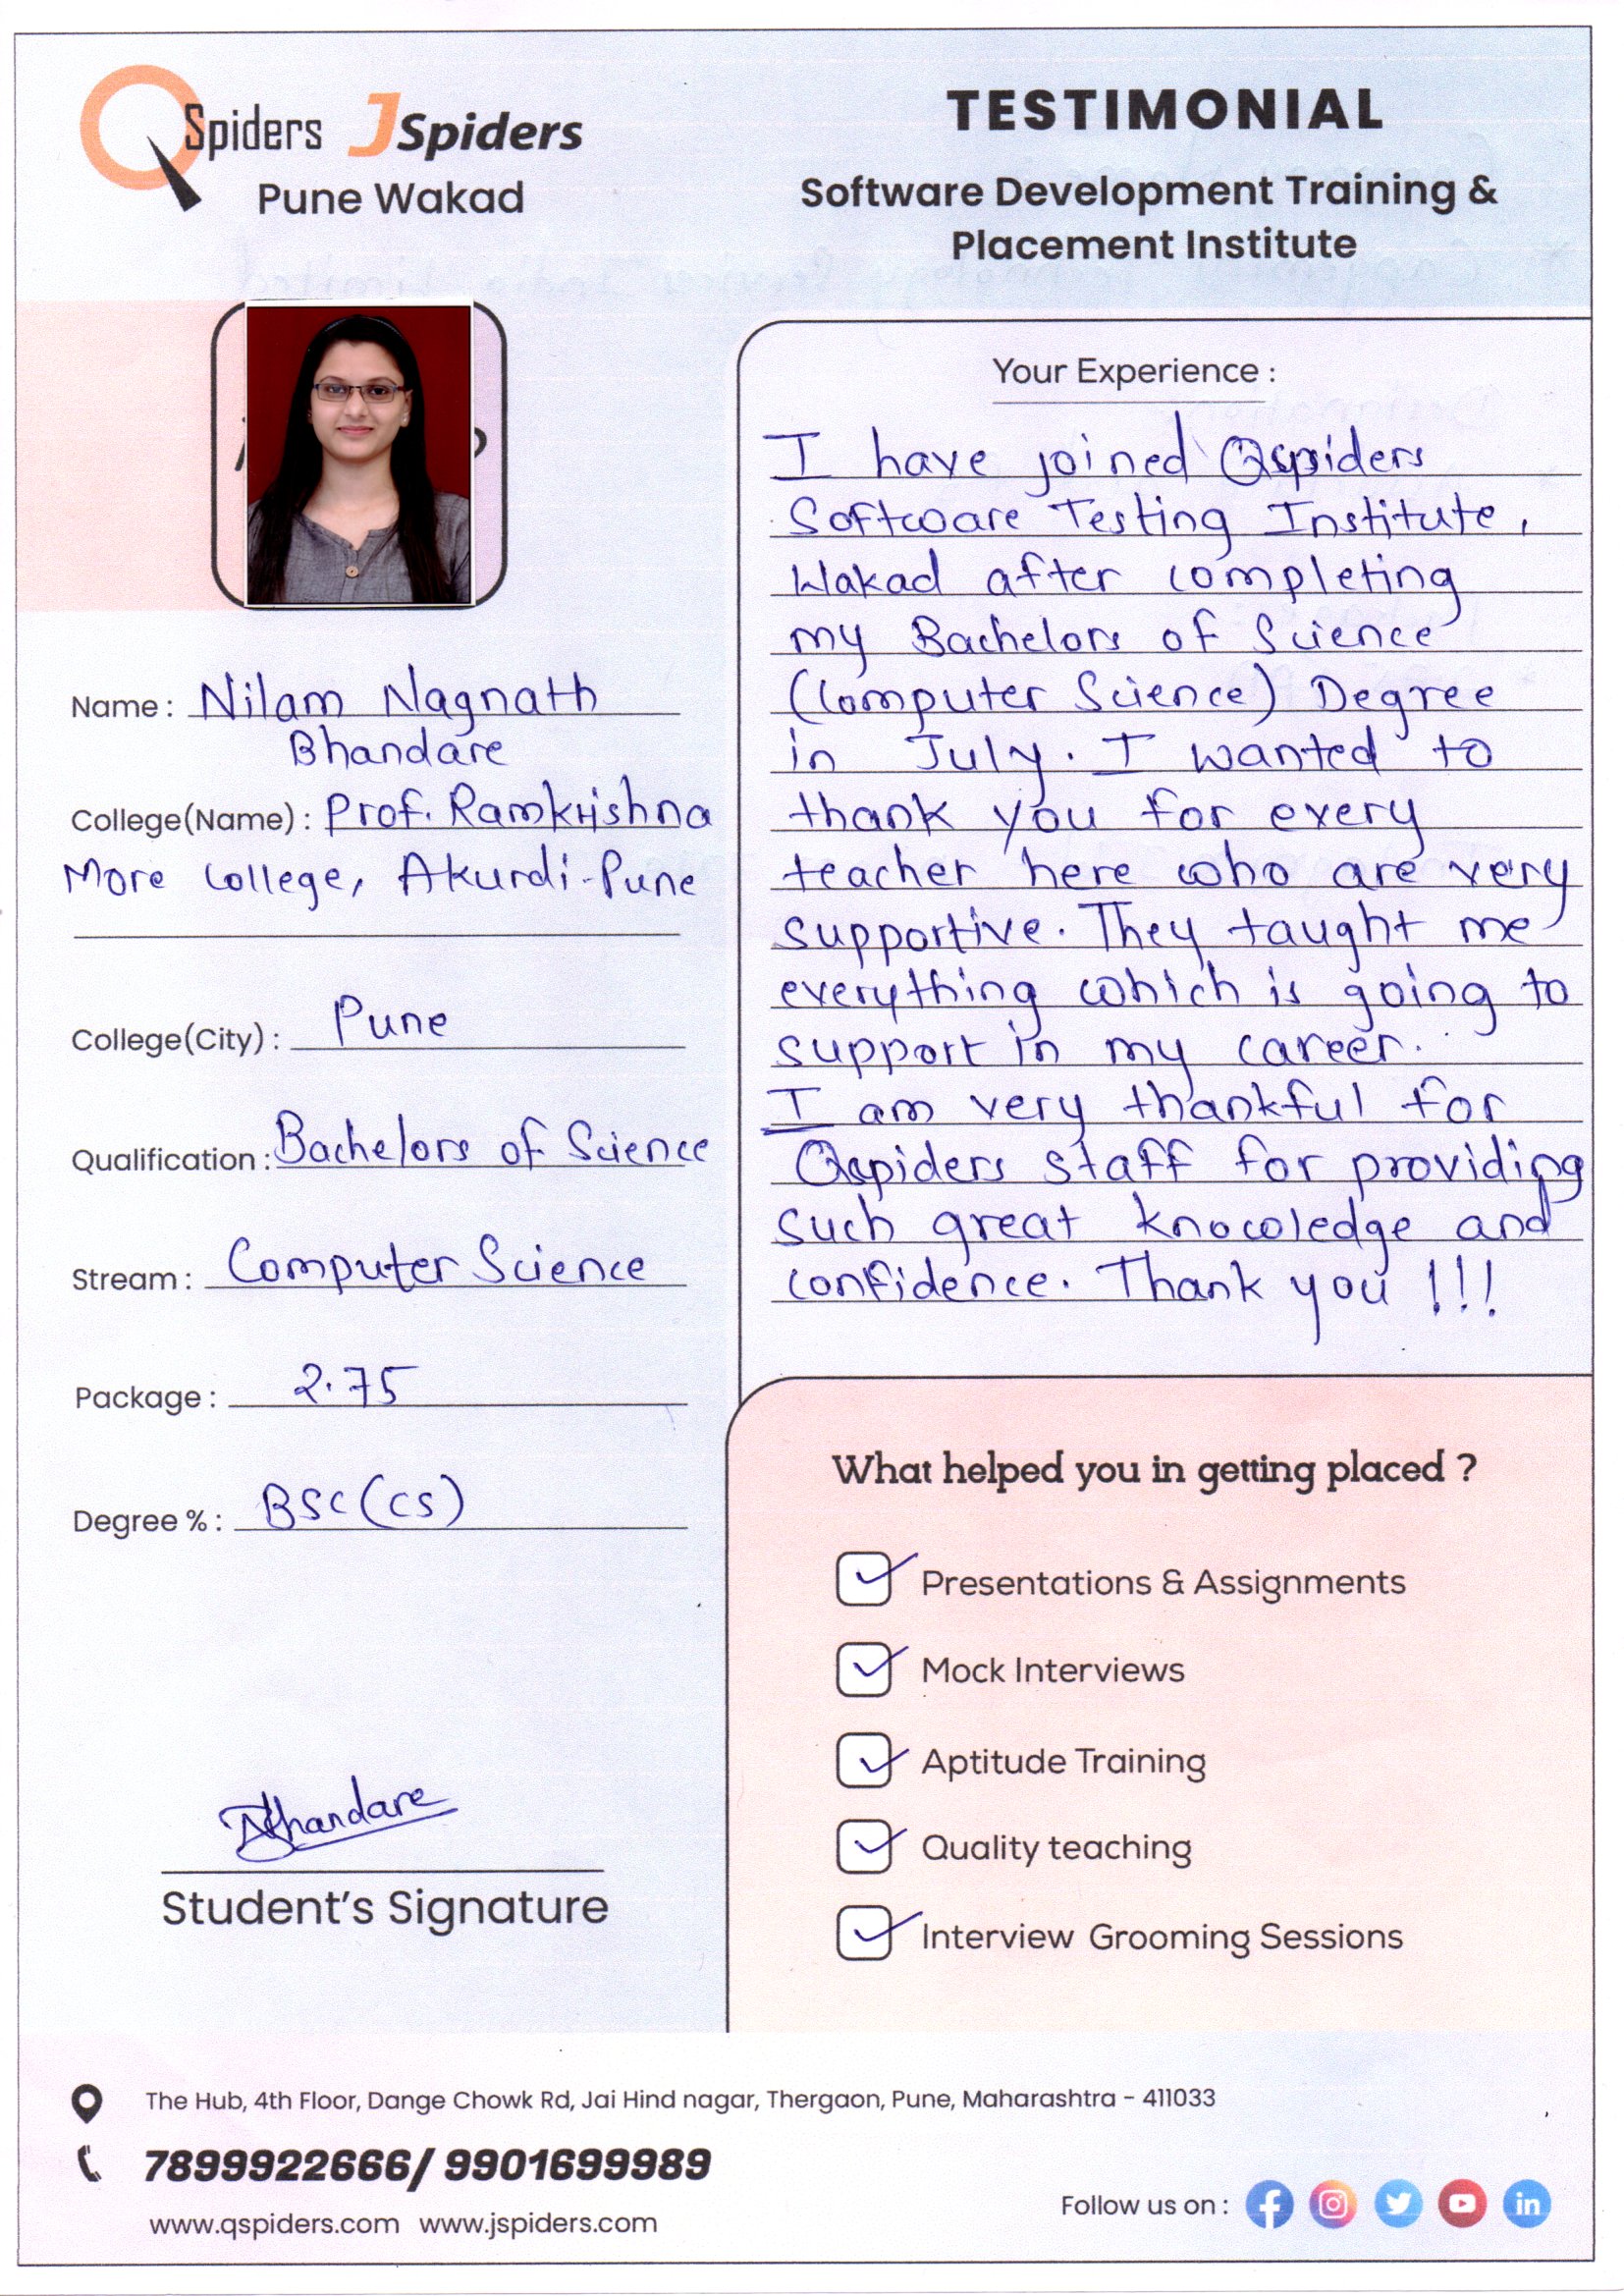 QSpiders JSpiders
Pune Wakad
TESTIMONIAL
Software Development Training &
Placement Institute
Name : Nilam Nagnath
Bhandare
College(Name) : Prof. Ramkrishna
More College, Akurdi-Pune
College(City) : Pune
Qualification : Bachelors of Science
Stream : Computer Science
Package : 2.75
Degree % : BSC (CS)
NBhandare
Student's Signature
Your Experience :
I have joined Qspiders
Software Testing Institute,
Wakad after completing
my Bachelors of Science
(Computer Science) Degree
in July. I wanted to
thank you for every
teacher here who are very
supportive. They taught me
everything which is going to
support in my career.
I am very thankful for
Qspiders staff for providing
such great knowledge and
confidence. Thank you !!!
What helped you in getting placed ?
Presentations & Assignments
Mock Interviews
Aptitude Training
Quality teaching
Interview Grooming Sessions
The Hub, 4th Floor, Dange Chowk Rd, Jai Hind nagar, Thergaon, Pune, Maharashtra - 411033
7899922666/ 9901699989
www.qspiders.com www.jspiders.com
Follow us on :